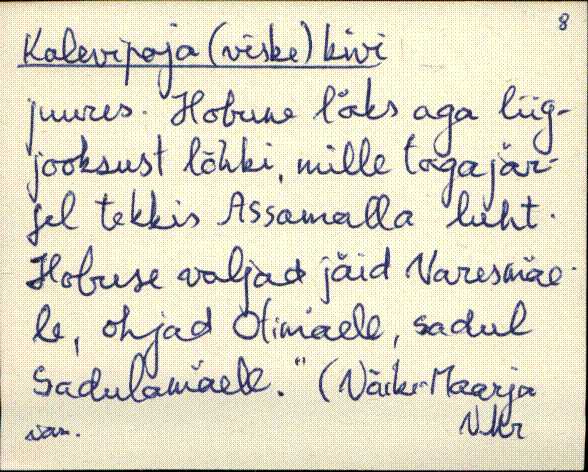 8
Kalevipoja (viske) kivi
juures. Hobune lõks aga liig-
jooksust lõhki, mille tagajär-
jel tekkis Assamalla luht.
Hobuse valjad jäid Varesmäe-
le, ohjad Otimäele, sadul
Sadulamäele." (Väike-Maarja
VKr